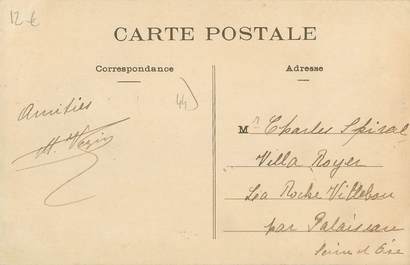 12 €
CARTE POSTALE
Correspondance
Adresse
44
Amitiés
Mr Charles Spiral
Villa Royer
La Roche Villebon
par Palaiseau
Seine et Oise